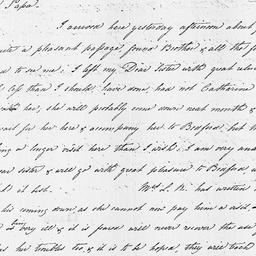 Papa.
I arrived here yesterday afternoon about
a pleasant passage, found Brother & all that
to see me; I left my Dear Sister with great
less than I should have done, had not Catharine
her, she will probably come down next month &
for her here & accompany her to Bedford, but
a longer visit here than I wish. I am very
sister & will go with great pleasure to Bedford
it best. Mrs L. has written
his coming down, as she cannot pay him a visit,
very ill & it is feared will never recover the use
her troubles too, & it is to be hoped, they will teach